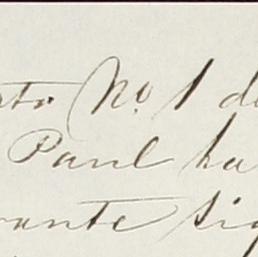 No. 1
Paul ha
rante sig